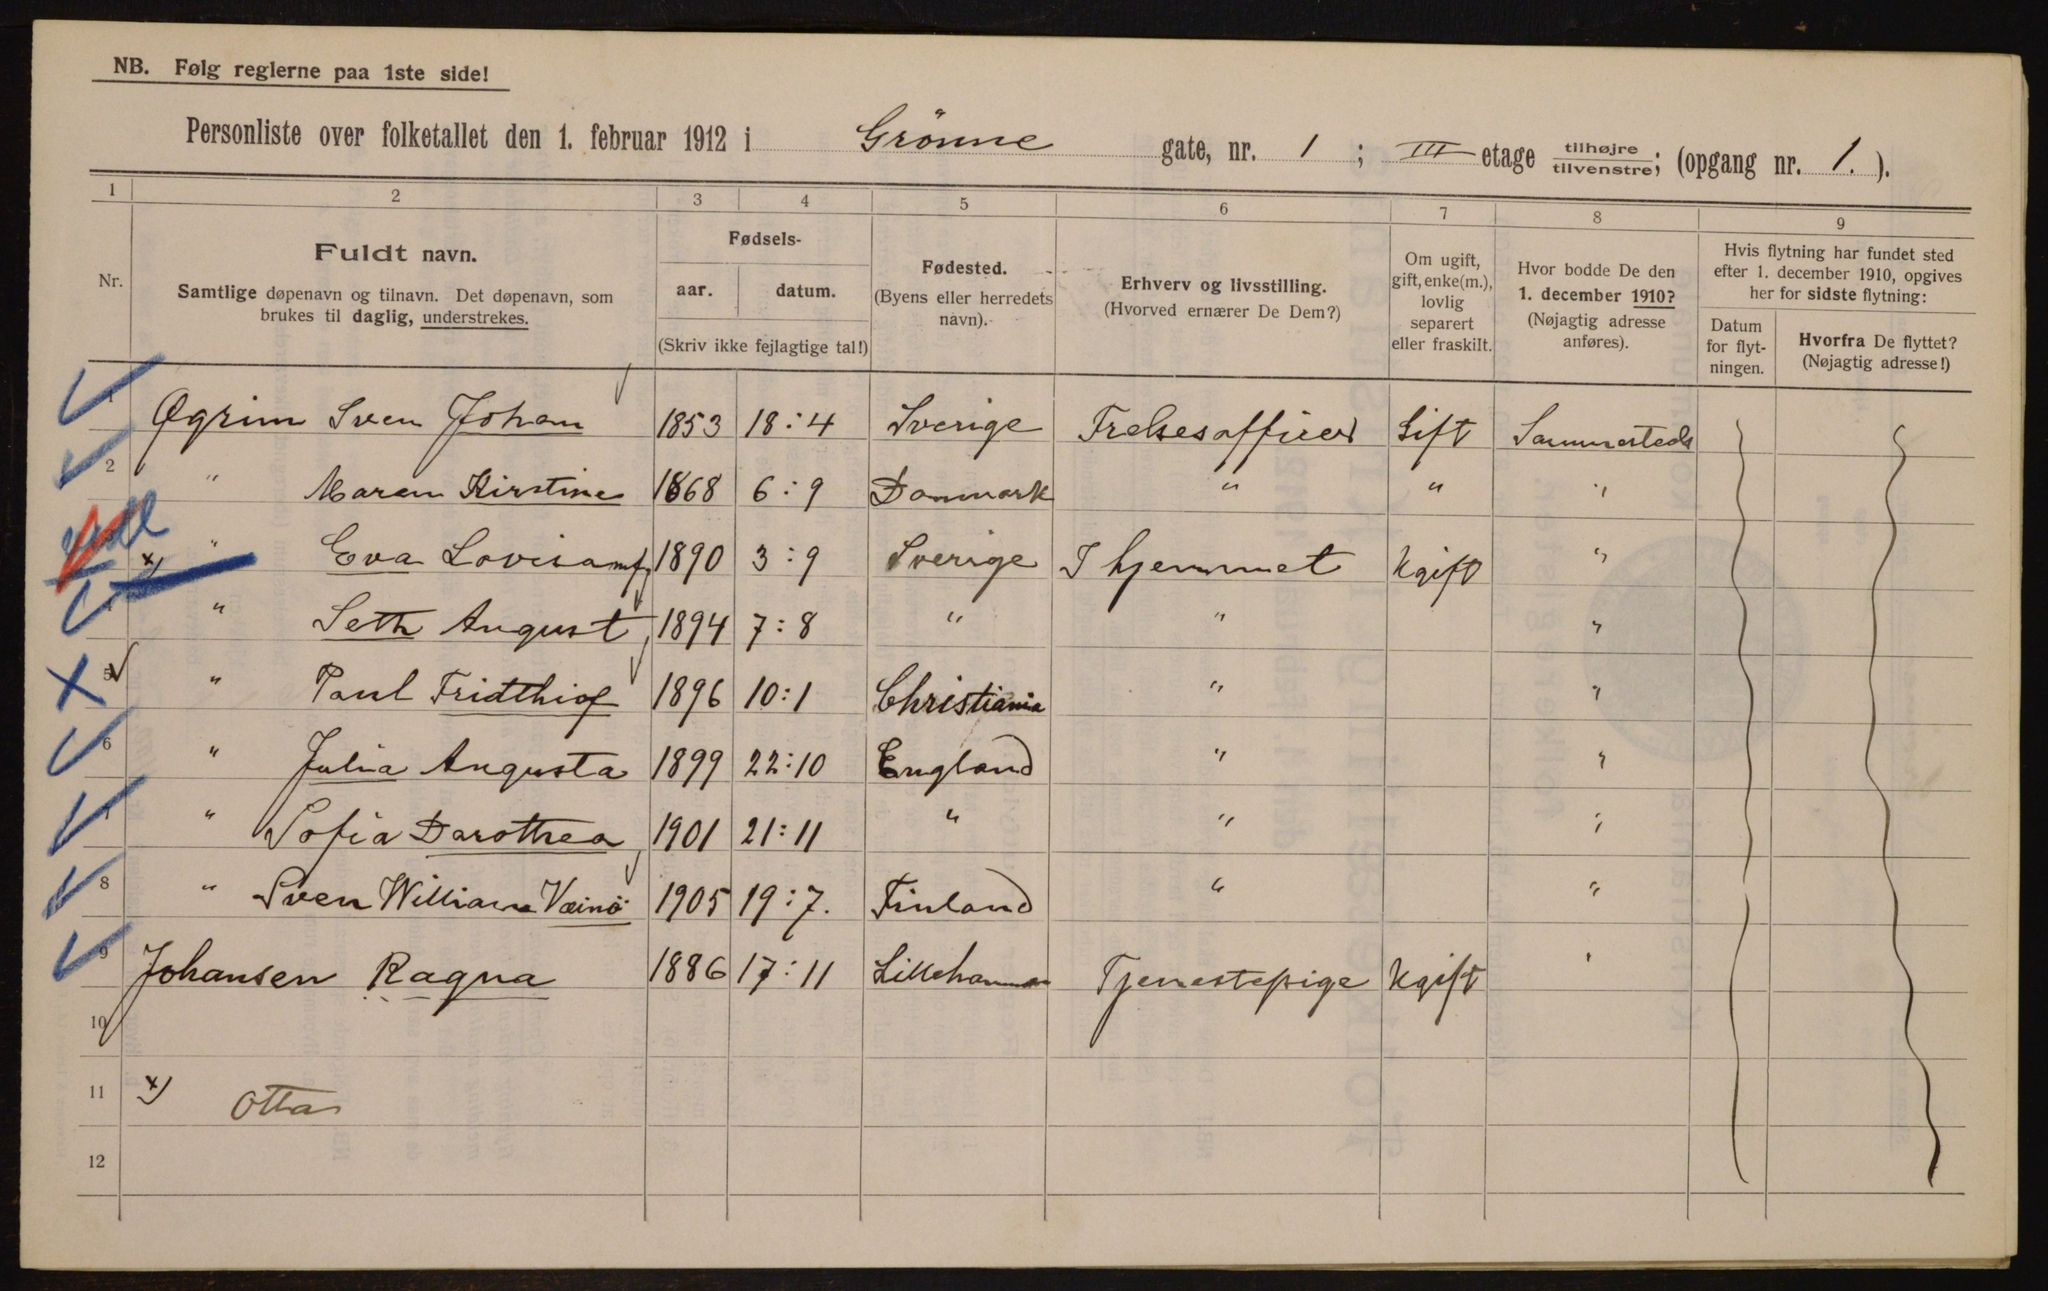 NB. Følg reglerne paa 1ste side!
Personliste over folketallet den 1. februar 1912 i Grönne gate, nr. 1 ; III etage tilhøjre tilvenstre; (opgang nr. 1. ).
1 2 3 4 5 6 7 8 9
Nr.
Fuldt navn.
Samtlige døpenavn og tilnavn. Det døpenavn, som
brukes til daglig, understrekes.
Fødsels-
aar. datum.
(Skriv ikke fejlagtige tal!)
Fødested.
(Byens eller herredets
navn).
Erhverv og livsstilling.
(Hvorved ernærer De Dem?)
Om ugift,
gift, enke(m.),
lovlig
separert
eller fraskilt.
Hvor bodde De den
1. december 1910?
(Nøjagtig adresse
anføres).
Hvis flytning har fundet sted
efter 1. december 1910, opgives
her for sidste flytning:
Datum
for flyt-
ningen.
Hvorfra De flyttet?
(Nøjagtig adresse!)
1 Øgrim Sven Johan 1853 18:4 Sverige Frelsesofficer Gift Sammesteds
2 " Maren Kirstine 1868 6:9 Danmark " " "
x) " Eva Lovisa 1890 3:9 Sverige I hjemmet Ugift "
" Seth August 1894 7:8 " " "
5 " Paul Fridthiof 1896 10:1 Christiania " "
6 " Julia Augusta 1899 22:10 England " "
7 " Sofia Dorothea 1901 21:11 " " "
8 " Sven William Väinö 1905 19:7. Finland " "
9 Johansen Ragna 1886 17:11 Lillehammer Tjenestepige Ugift "
10
11 x) Otta
12